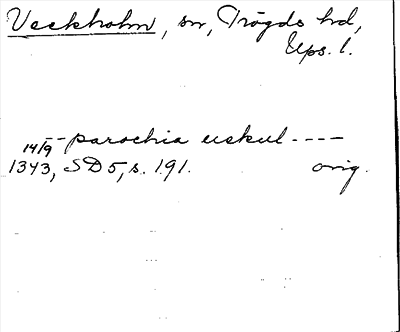 Veckholm, sn, Trögds hd,
Ups. l.
-- parochia uskul ----
14/9
1343, SD 5, s. 191. orig.